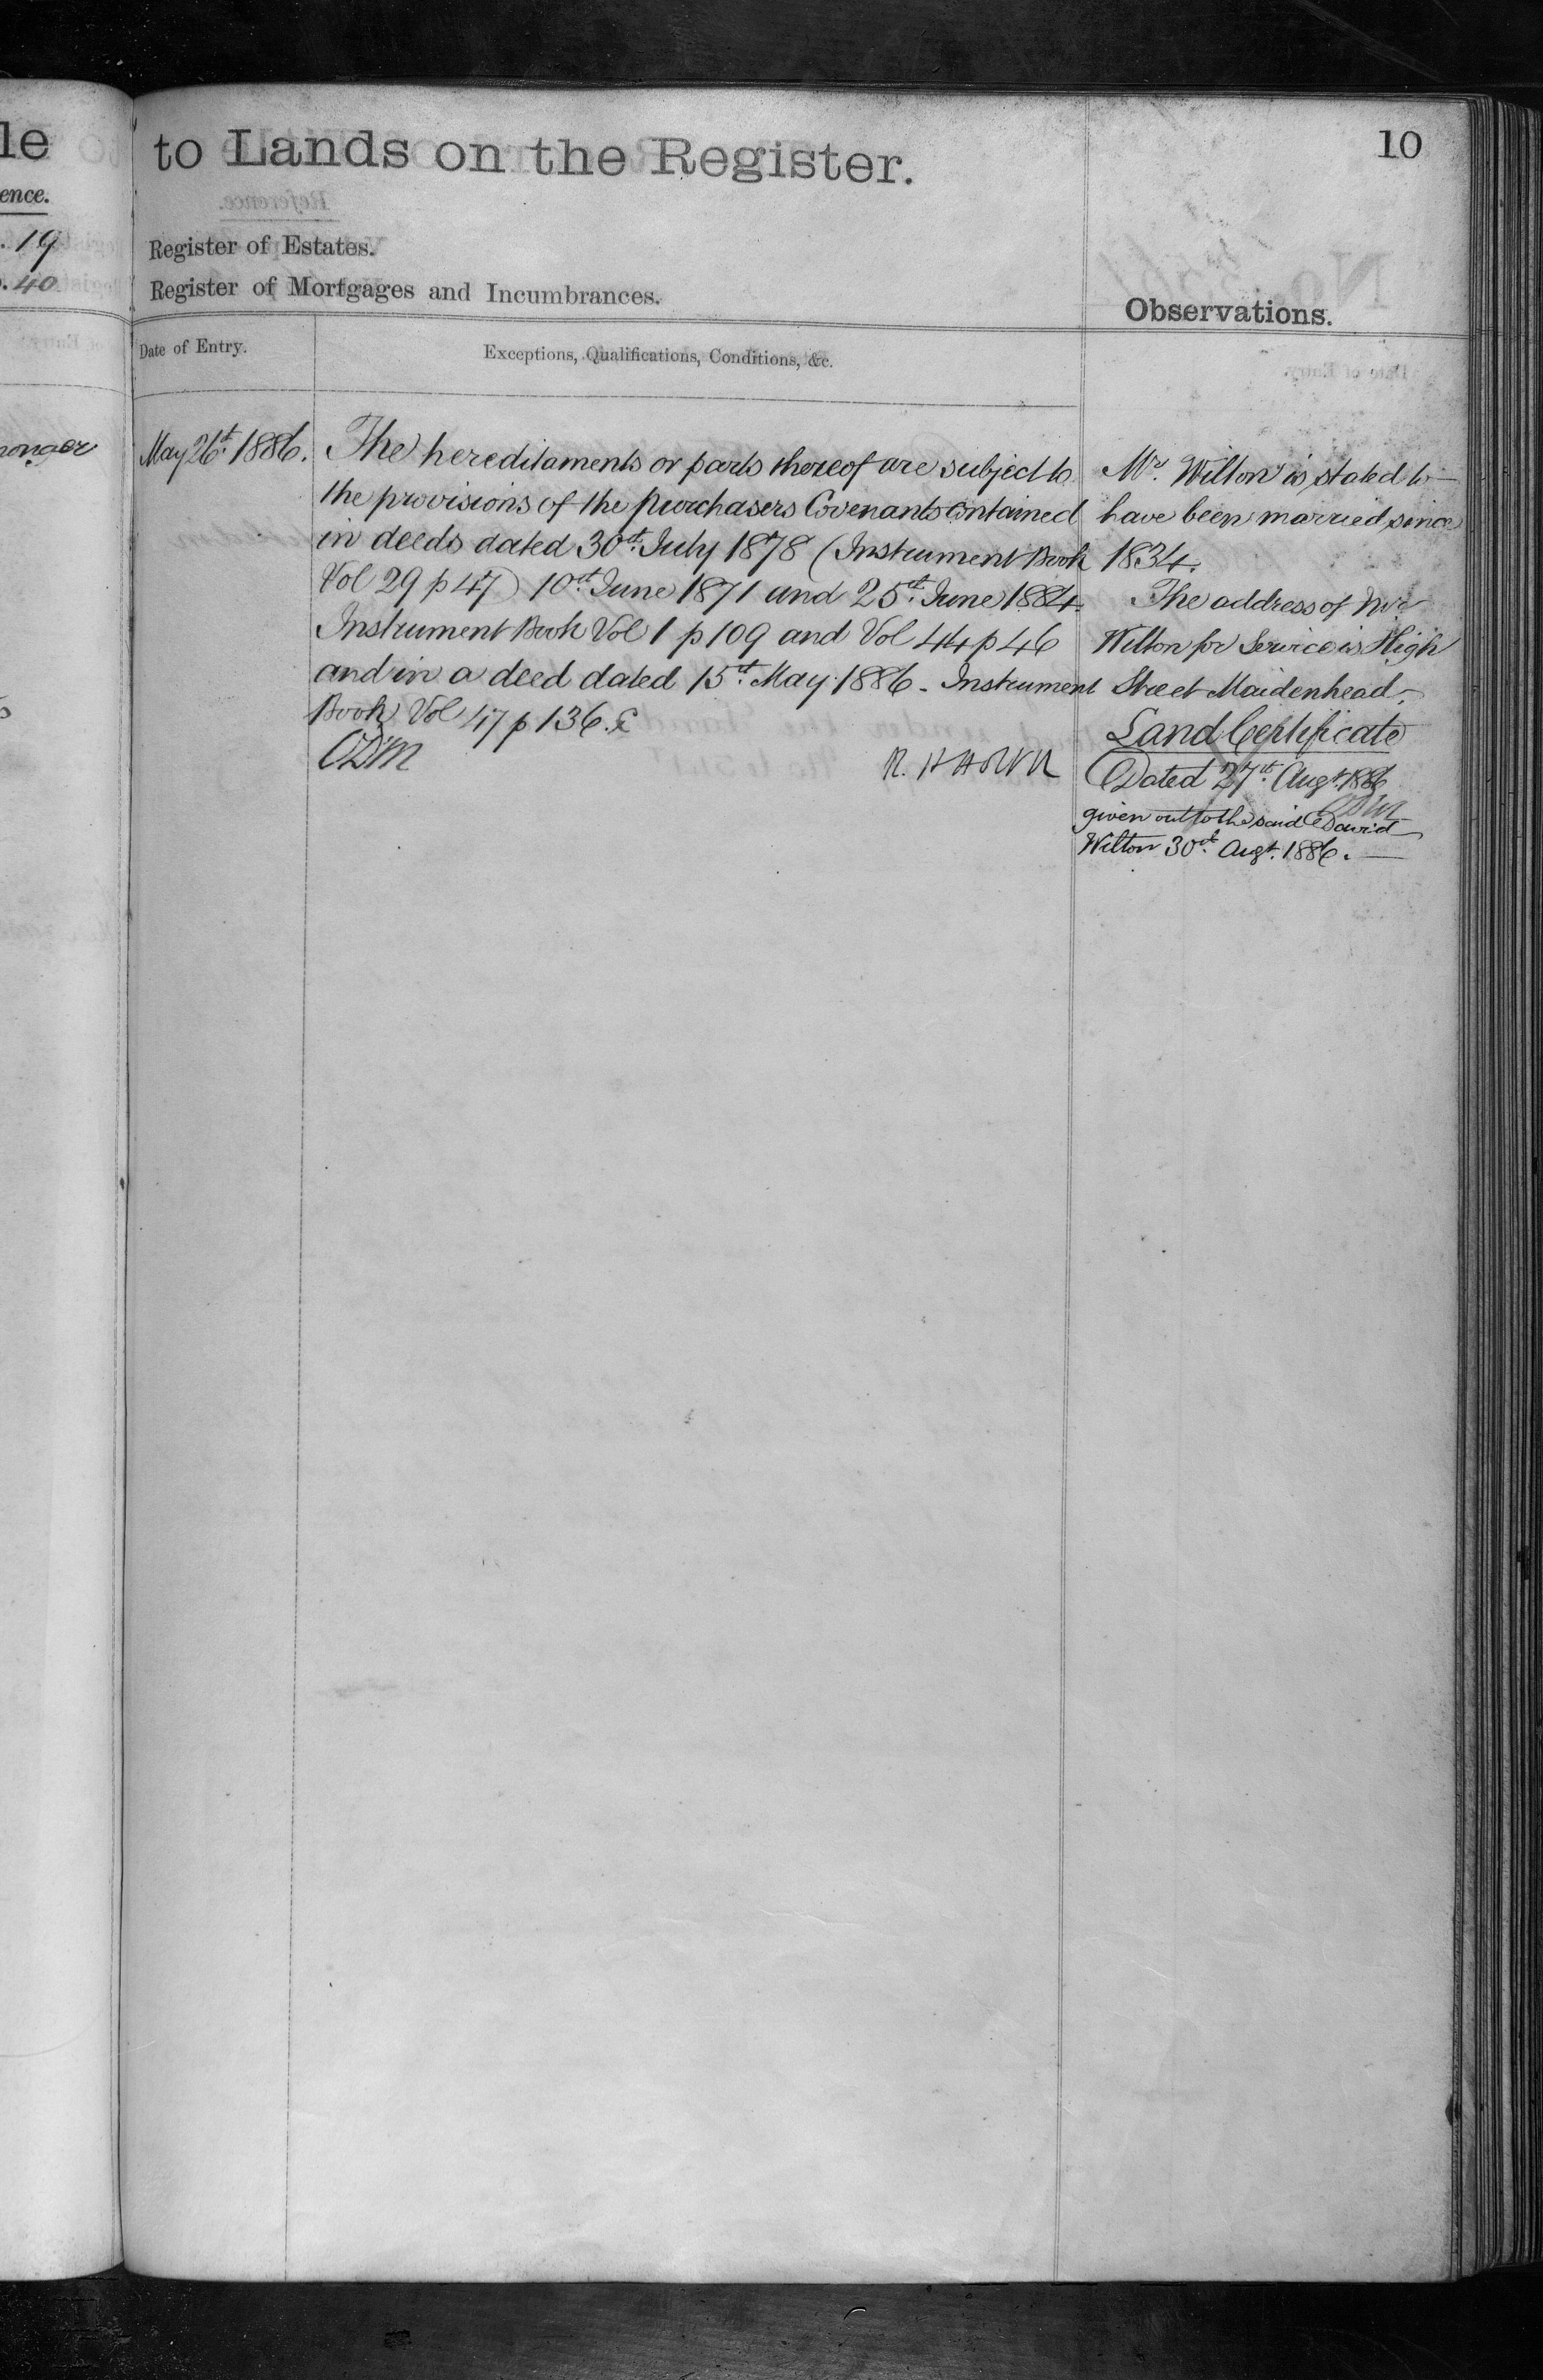 le
ence.
. 19
. 40
onger
to Lands on the Register.
10
Register of Estates.
Register of Mortgages and Incumbrances.
Observations.
Date of Entry.
Exceptions, Qualifications, Conditions, &c.
May 26th. 1886.
The hereditaments or parts thereof are subject to
the provisions of the purchasers Covenants contained
in deeds dated 30th. July 1878 (Instrument Book
Vol 29 p 47) 10th. June 1871 and 25th. June 1884.
Instrument Book Vol 1 p 109 and Vol 44 p 46
and in a deed dated 15th. May 1886. Instrument
Book Vol 47 p 136.
Mr. Wilton is stated to
have been married since
1834.
The address of Mr
Wilton for Service is High
Street Maidenhead.
Land Certificate
Dated 27th. Augt. 1886
given out to the said David
Wilton 30th. Augt. 1886.